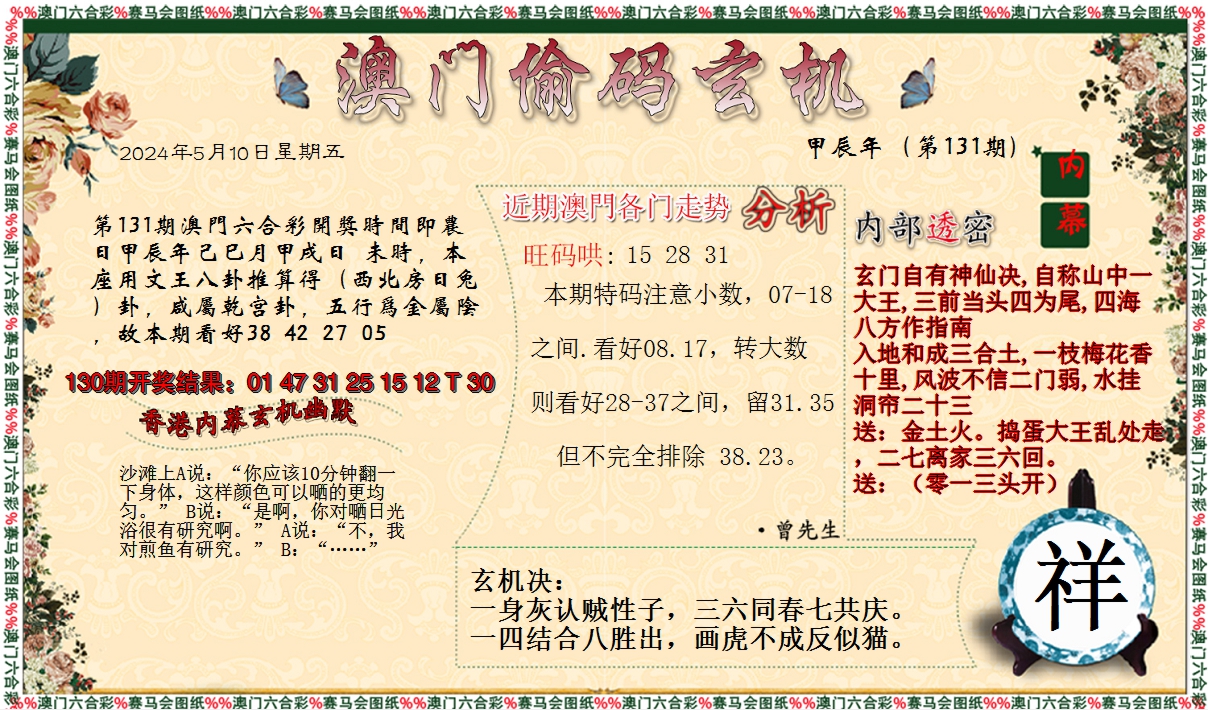 %%澳门六合彩%赛马会图纸%%澳门六合彩%赛马会图纸%%澳门六合彩%赛马会图纸%%澳门六合彩%赛马会图纸%%澳门六合彩%赛马会图纸%%澳门六合彩%赛马会图纸%%
澳门偷码玄机
2024年5月10日星期五
甲辰年（第131期）
第131期澳門六合彩開獎時間即農
日甲辰年己巳月甲戌日 未時，本
座用文王八卦推算得（西北房日兔
）卦，咸屬乾宫卦，五行爲金屬陰
，故本期看好38 42 27 05
130期开奖结果：01 47 31 25 15 12 T 30
香港内幕玄机幽默
沙滩上A说：“你应该10分钟翻一
下身体，这样颜色可以晒的更均
匀。” B说：“是啊，你对晒日光
浴很有研究啊。” A说：“不，我
对煎鱼有研究。” B：“……”
近期澳門各门走势 分析
旺码哄: 15 28 31
本期特码注意小数，07-18
之间.看好08.17，转大数
则看好28-37之间，留31.35
但不完全排除 38.23。
·曾先生
内幕
内部透密
玄门自有神仙决,自称山中一
大王,三前当头四为尾,四海
八方作指南
入地和成三合土,一枝梅花香
十里,风波不信二门弱,水挂
洞帘二十三
送：金土火。捣蛋大王乱处走
，二七离家三六回。
送：（零一三头开）
玄机决：
一身灰认贼性子，三六同春七共庆。
一四结合八胜出，画虎不成反似猫。
祥
%%澳门六合彩%赛马会图纸%%澳门六合彩%赛马会图纸%%澳门六合彩%赛马会图纸%%澳门六合彩%赛马会图纸%%澳门六合彩%赛马会图纸%%澳门六合彩%赛马会图纸%%